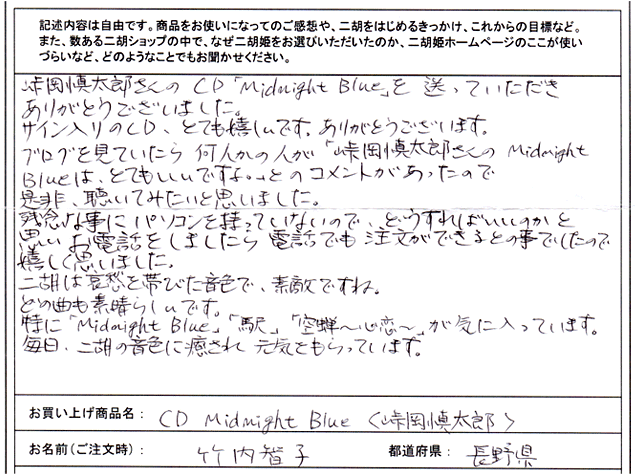 記述内容は自由です。商品をお使いになってのご感想や、二胡をはじめるきっかけ、これからの目標など。
また、数ある二胡ショップの中で、なぜ二胡姫をお選びいただいたのか、二胡姫ホームページのここが使い
づらいなど、どのようなことでもお聞かせください。
峠岡慎太郎さんの CD「Midnight Blue」を 送っていただき
ありがとうございました。
サイン入りのCD、とても嬉しいです。ありがとうございます。
ブログを見ていたら 何人かの人が「峠岡慎太郎さんの Midnight
Blueは、とてもいいですね。」とのコメントがあったので
是非、聴いてみたいと思いました。
残念な事に パソコンを持っていないので、どうすればいいのかと
思い お電話をしましたら 電話でも 注文ができるとの事でしたので
嬉しく思いました。
二胡は哀愁を帯びた音色で、素敵ですね。
どの曲も素晴らしいです。
特に「Midnight Blue」「駅」「空蝉〜心恋〜」が気に入っています。
毎日、二胡の音色に癒され 元気をもらっています。
お買い上げ商品名： CD Midnight Blue 〈峠岡慎太郎〉
お名前(ご注文時)： 竹内智子 都道府県： 長野県